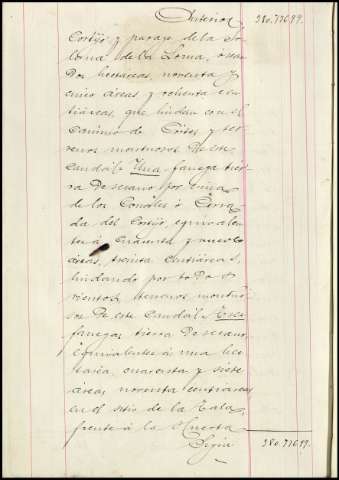 Anterior 380.776,99.
Cortijo y parage de la So-
lana de la Loma, o sean
dos hectáreas, noventa y
cinco áreas y ochenta cen-
tiáreas, que lindan con el
camino de y ter-
renos montuosos de este
caudal: Una fanega tier-
ra de secano por cima
de los Corrales ó Cerra-
da del Cortijo, equivalen-
te á cuarenta y nueve
áreas, treinta centiáreas,
lindando por todos
vientos, terrenos montuo-
sos de este caudal: Tres
fanegas tierra de secano
equivalentes á una hec-
tarea, cuarenta y siete
áreas noventa centiáreas
en el sitio de la Tala,
frente á la Huerta
Sigue 380.776,99.